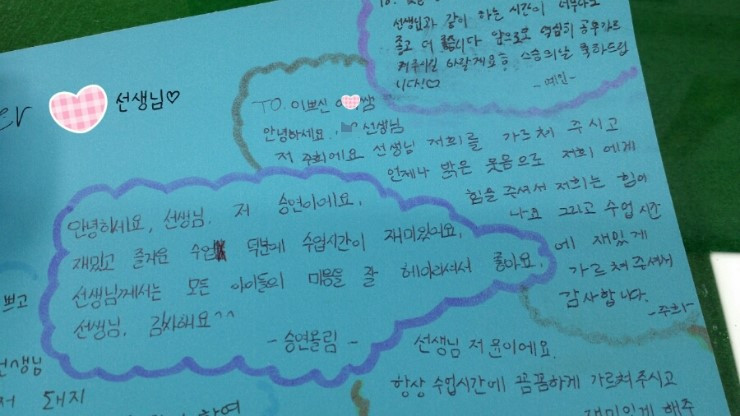 선생님♡
선생님과 같이 하는 시간이
좋고 더 앞으로도 열심히
스승의날 축하드립
니다!♡
-예인-
TO. 이쁘신
안녕하세요, 선생님
저 주희에요 선생님 저희를 가르쳐 주시고
언제나 밝은 웃음으로 저희 에게
힘을 주셔서 저희는 힘이
나요 그리고 수업 시간
에 재밌 게
가르쳐 주셔서
감사합니다.
-주희-
안녕하세요, 선생님. 저 승연이에요.
재밌고 즐거운 수업 덕분에 수업시간이 재미있어요.
선생님께서는 모든 아이들의 마음을 잘 헤아려셔서 좋아요.
선생님. 감사해요^^
-승연올림-
쁘고
선생님
돼지
선생님 저 윤이에요.
항상 수업시간에 꼼꼼하게 가르쳐주시고
재미있게 해주